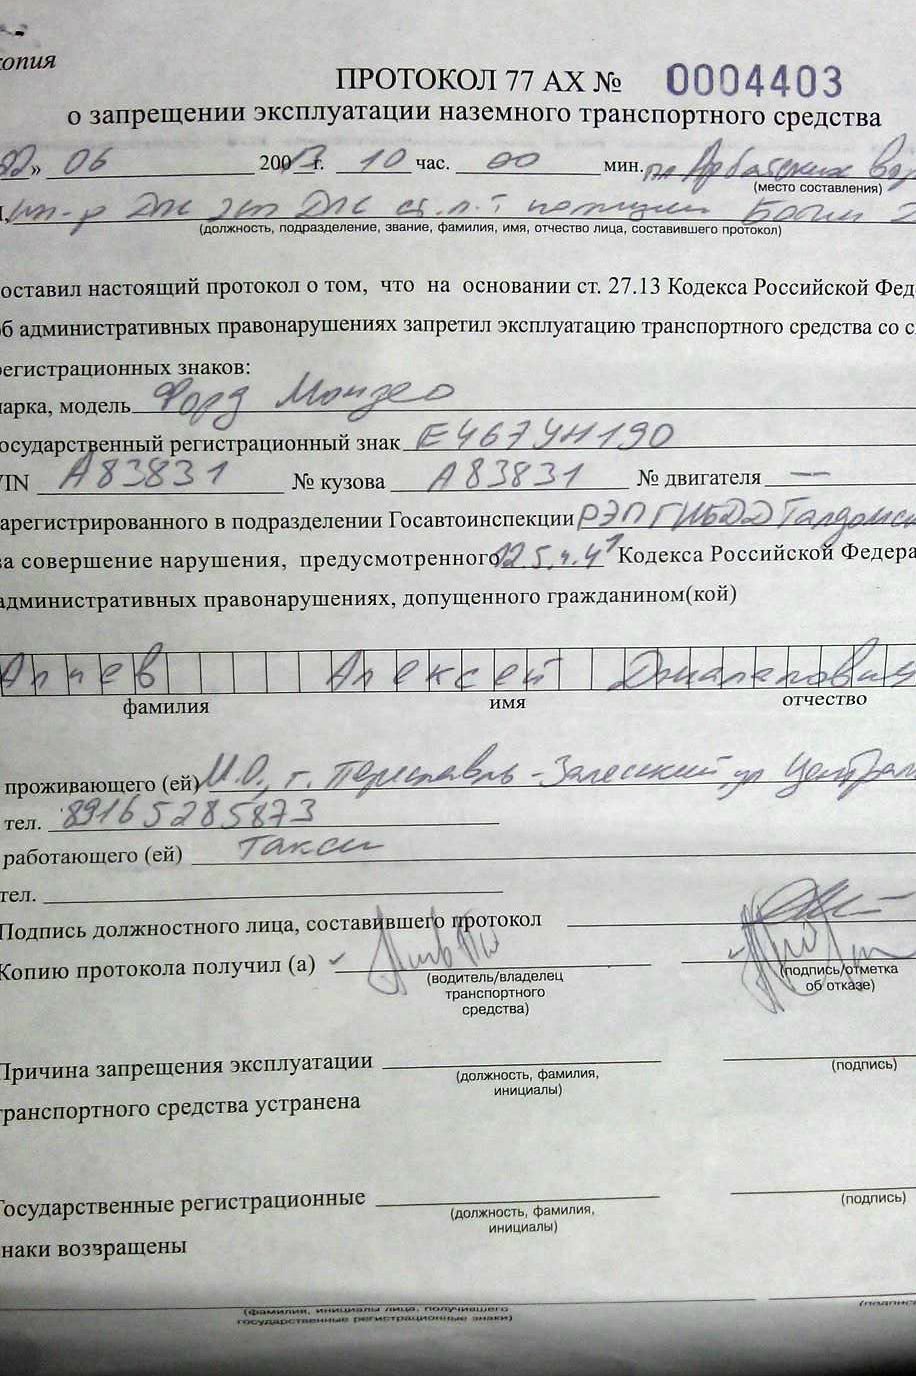 копия
ПРОТОКОЛ 77 АХ № 0004403
о запрещении эксплуатации наземного транспортного средства
22» 06 2013г. 10 час. 00 мин. пл Арбатских
(место составления)
ДПС ДПС ст. л-т полиции
(должность, подразделение, звание, фамилия, имя, отчество лица, составившего протокол)
оставил настоящий протокол о том, что на основании ст. 27.13 Кодекса Российской Фед
об административных правонарушениях запретил эксплуатацию транспортного средства со с
регистрационных знаков:
марка, модель Форд Мондео
государственный регистрационный знак Е467УН190
VIN А83831 № кузова А83831 № двигателя —
зарегистрированного в подразделении Госавтоинспекции РЭП ГИБДД Талдомск
за совершение нарушения, предусмотренного 12.5, ч. 4¹ Кодекса Российской Федера
административных правонарушениях, допущенного гражданином(кой)
Алиев Алексей
фамилия имя отчество
проживающего (ей) М.О., г. Переславль-Залесский ул Централ
тел. 89165285873
работающего (ей) такси
тел.
Подпись должностного лица, составившего протокол
Копию протокола получил (а)
(водитель/владелец транспортного средства) (подпись/отметка об отказе)
Причина запрещения эксплуатации
(должность, фамилия, инициалы) (подпись)
транспортного средства устранена
Государственные регистрационные
(должность, фамилия, инициалы) (подпись)
знаки возвращены
(фамилия, инициалы лица, получившего государственные регистрационные знаки) (подпис